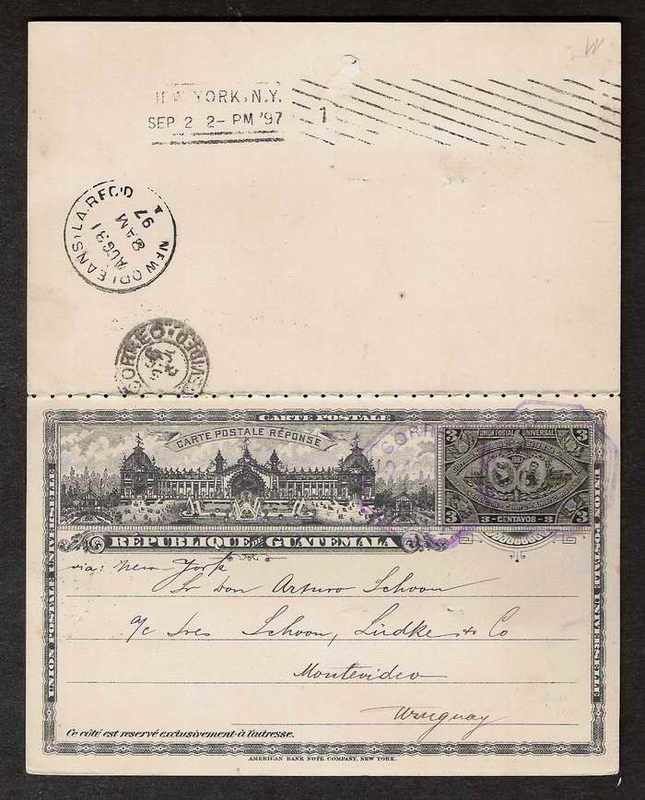 W
NEW YORK, N.Y.
SEP 2 2-PM '97
1
NEW ORLEANS, LA. REC'D.
AUG 31
8 AM
97
CORREO
CARTE POSTALE
CARTE POSTALE RÉPONSE
3 3
UNION POSTAL UNIVERSAL
3 3
3 - CENTAVOS - 3
RÉPUBLIQUE DE GUATEMALA
UNION POSTALE UNIVERSELLE
UNION POSTALE UNIVERSELLE
via: New York
Sr Don Arturo Schoon
a/c Sres Schoon, Lüdke & Co
Montevideo
Uruguay
Ce côté est reservé exclusivement à l'adresse.
AMERICAN BANK NOTE COMPANY, NEW YORK.